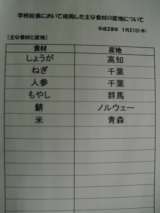 学校給食において使用した主な食材の産地について
平成28年 1月21日(木)
【主な食材と産地】
食材 産地
しょうが 高知
ねぎ 千葉
人参 千葉
もやし 群馬
鯖 ノルウェー
米 青森